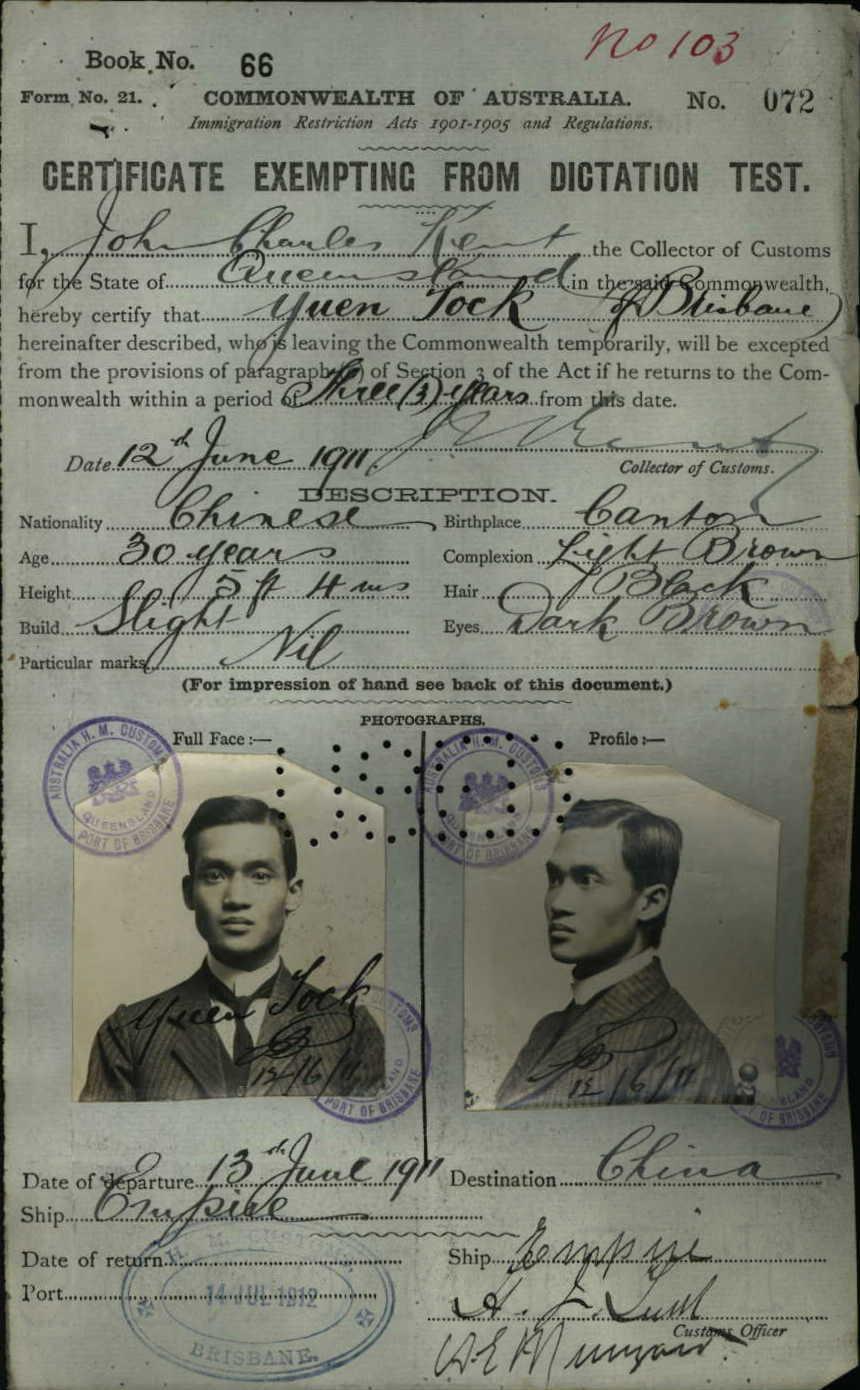 No 103
Book No. 66
Form No. 21. COMMONWEALTH OF AUSTRALIA. No. 072
Immigration Restriction Acts 1901-1905 and Regulations.
CERTIFICATE EXEMPTING FROM DICTATION TEST.
I, John Charles Kent the Collector of Customs
for the State of Queensland in the said Commonwealth,
hereby certify that Yuen Tock of Brisbane)
hereinafter described, who is leaving the Commonwealth temporarily, will be excepted
from the provisions of paragraph of Section 3 of the Act if he returns to the Com-
monwealth within a period of Three (3) years from this date.
Date 12th June 1911. Kent
Collector of Customs.
DESCRIPTION.
Nationality Chinese Birthplace Canton
Age 30 years Complexion Light Brown
Height 5 ft 4 ins Hair Black
Build Slight Eyes Dark Brown
Particular marks Nil
(For impression of hand see back of this document.)
PHOTOGRAPHS.
Full Face :— Profile :—
AUSTRALIA H. M. CUSTOMS QUEENSLAND PORT OF BRISBANE
AUSTRALIA H. M. CUSTOMS QUEENSLAND PORT OF BRISBANE
Yuen Tock
12/6/11
12/6/11
CUSTOMS PORT OF BRISBANE
CUSTOMS PORT OF BRISBANE
Date of departure 13th June 1911 Destination China
Ship Empire
Date of return Ship Empire
Port
14 JUL 1912
BRISBANE.
Customs Officer